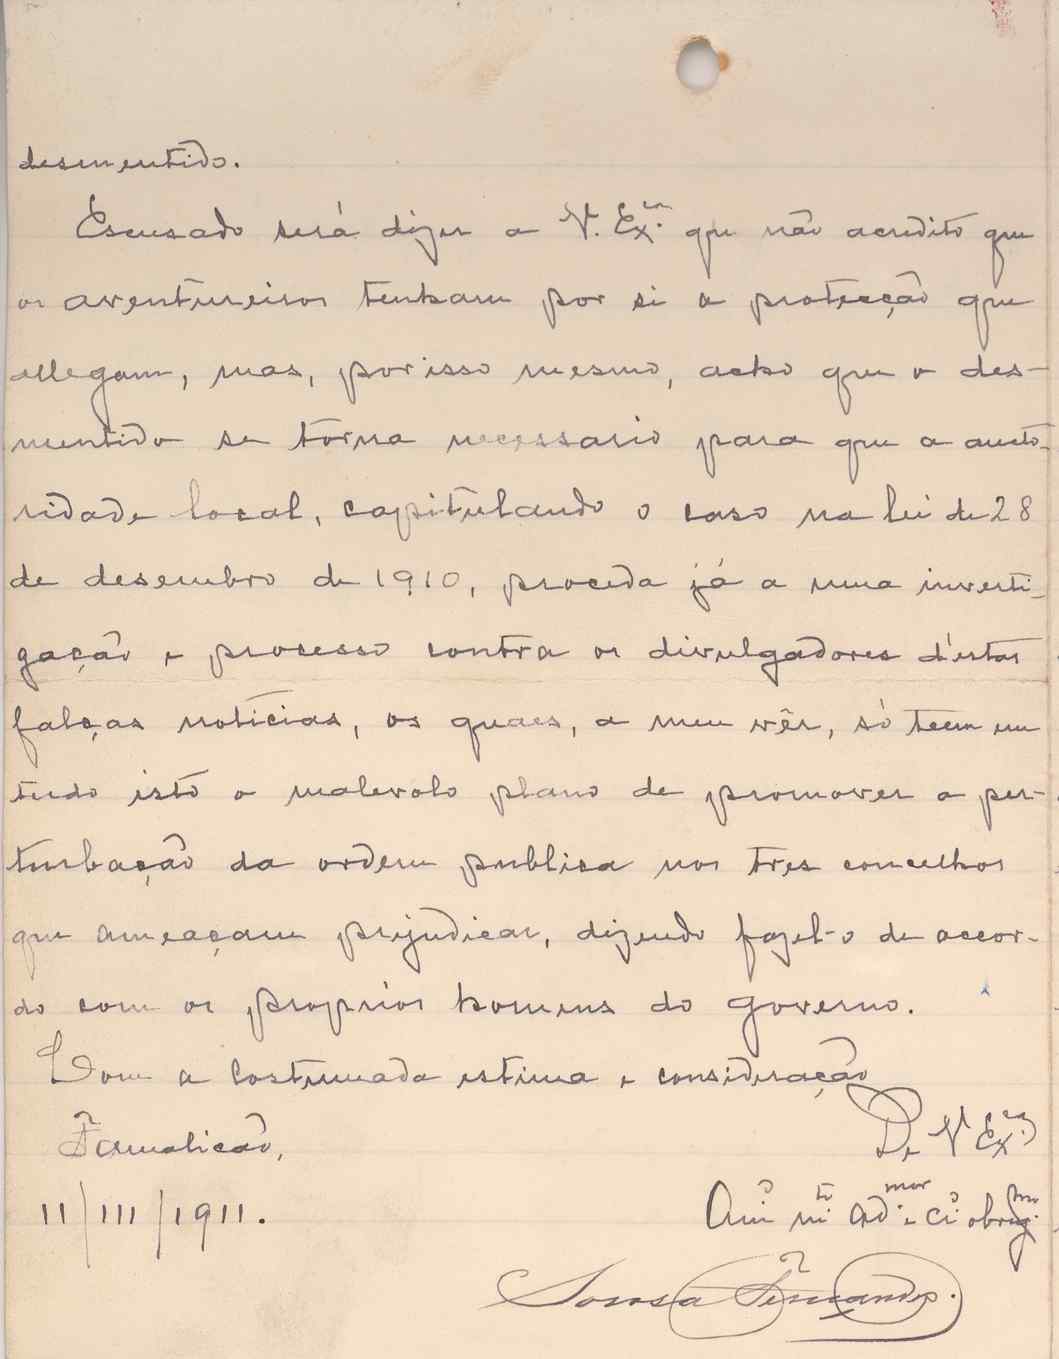 desmentido.
Escusado será dizer a V. Ex.ª que não acredito que
os aventureiros tenham por si a protecção que
allegam, mas, por isso mesmo, acho que o des-
mentido se torna necessario para que a aucto-
ridade local, capitulando o caso na lei de 28
de desembro de 1910, proceda já a uma investi-
gação e processo contra os divulgadores d'estas
falças notícias, os quaes, a meu vêr, só teem em
tudo isto o malevolo plano de promover a per-
turbação da ordem publica nos tres concelhos
que ameaçam prijudicar, dizendo fazel-o de accor-
do com os proprios homens do governo.
Com a costumada estima e consideração
De V Ex.ª
Famalicão,
11/III/1911.
Am.º m.to ad.mor e c.º obrig.mo
Sousa Fernandes.